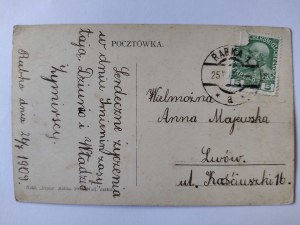 POCZTÓWKA.
Serdeczne życzenia
w dniu Imienin zasy
łają, Dziunia i Władzio
Rabka dnia 24/7 1909.
RABKA
25
a
Wielmożna
Anna Majewska
Lwów
ul. Kościuszki 16.